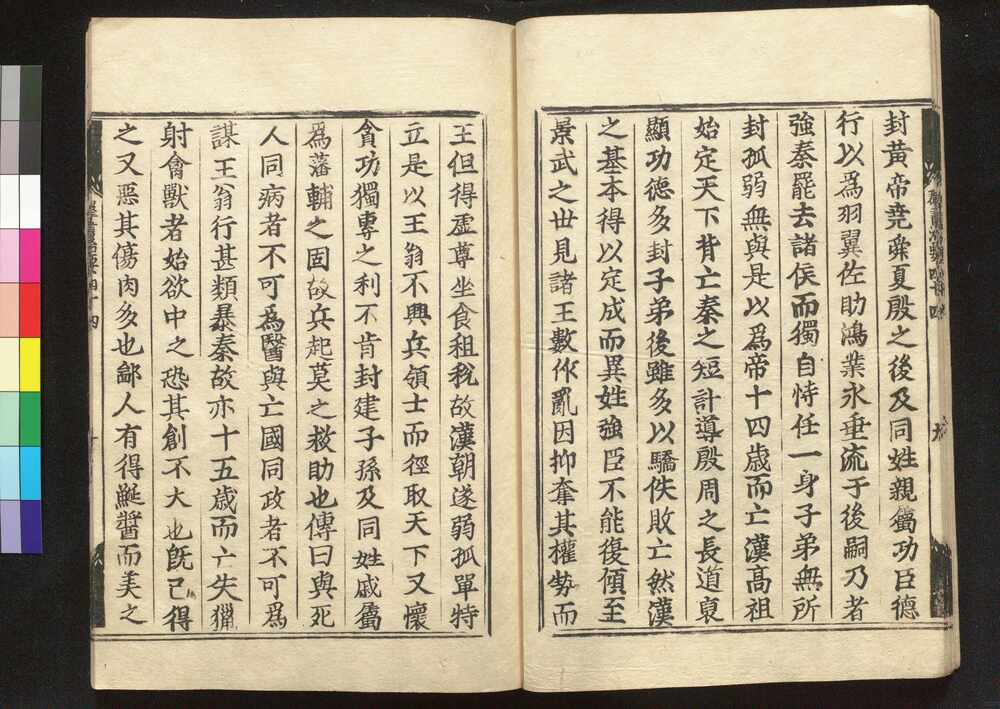 封黃帝堯舜夏殷之後及同姓親屬功臣德
行以爲羽翼佐助鴻業永垂流于後嗣乃者
強秦罷去諸侯而獨自恃任一身子弟無所
封孤弱無與是以爲帝十四歲而亡漢高祖
始定天下背亡秦之短計導殷周之長道裒
顯功德多封子弟後雖多以驕佚敗亡然漢
之基本得以定成而異姓強臣不能復傾至
景武之世見諸王數作亂因抑奪其權勢而
王但得虛尊坐食租稅故漢朝遂弱孤單特
立是以王翁不興兵領士而徑取天下又懷
貪功獨專之利不肯封建子孫及同姓戚屬
爲藩輔之固故兵起莫之救助也傳曰與死
人同病者不可爲醫與亡國同政者不可爲
謀王翁行甚類暴秦故亦十五歲而亡失獵
射禽獸者始欲中之恐其創不大也旣已得
之又惡其傷肉多也鄙人有得鯅醬而美之
群書治要四十四